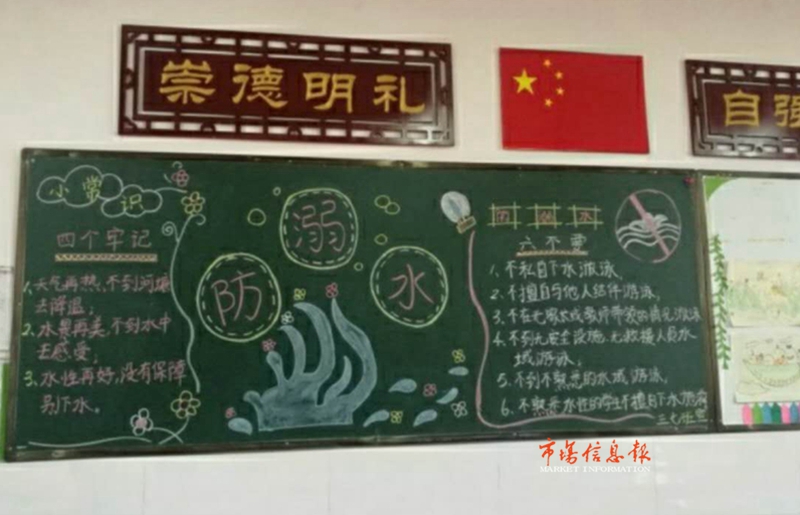 崇德明礼
自强
小常识
四个牢记
1、天气再热,不到河塘
去降温;
2、水景再美,不到水中
去感受;
3、水性再好,没有保障
别下水。
防溺水
六不要
1、不私自下水游泳,
2、不擅自与他人结伴游泳,
3、不在无家长或教师带领的情况游泳
4、不到无安全设施、无救援人员水
域游泳;
5、不到不熟悉的水域游泳,
6、不熟悉水性的学生不擅自下水施救
三七班宣
市场信息報
MARKET INFORMATION